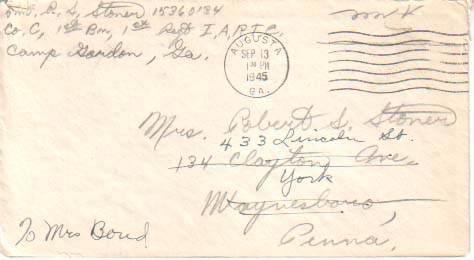 R. S. Stoner 15360134
Co. C, 1st Bn, 1st Regt I.A.P.T.C.,
Camp Gordon, Ga.
AUGUSTA
SEP 13
PM
1945
GA.
Mrs. Robert S. Stoner
433 Lincoln St.
134 Clayton Ave.
York
Waynesboro,
Penna.
To Mrs